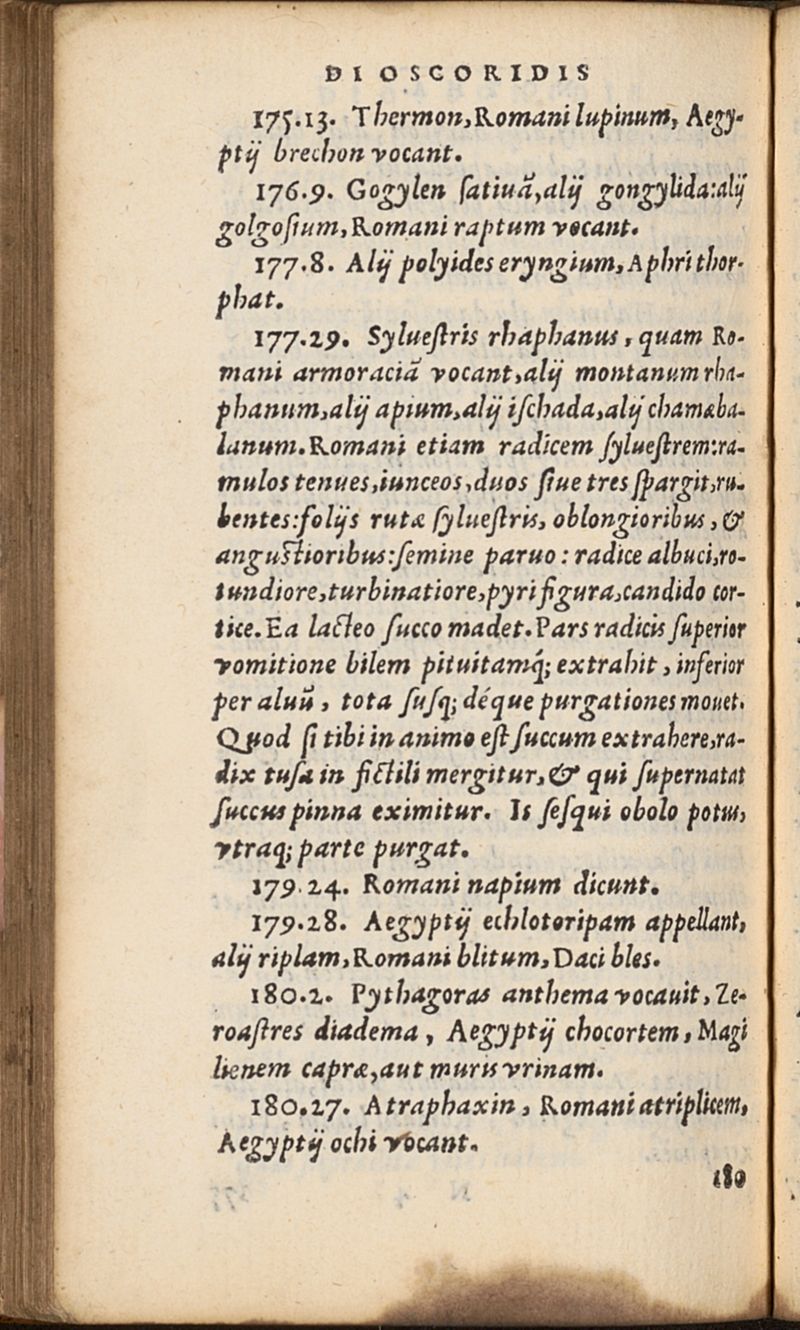 DIOSCORIDIS
175.13. Thermon, Romani lupinum, Aegy-
ptij brechon vocant.
176.9. Gogylen ſatiuã, alij gongylida: alij
golgoſium, Romani raptum vocant.
177.8. Alij polyides eryngium, Aphri thor-
phat.
177.29. Sylueſtris rhaphanus, quam Ro-
mani armoraciã vocant, alij montanum rha-
phanum, alij apium, alij iſchada, alij chamæba-
lanum. Romani etiam radicem ſylueſtrem: ra-
mulos tenues, iunceos, duos ſiue tres ſpargit, ru-
bentes: folijs rutæ ſylueſtris, oblongioribus, &
anguſtioribus: ſemine paruo: radice albuci, ro-
tundiore, turbinatiore, pyri figura, candido cor-
tice. Ea lacteo ſucco madet. Pars radicis ſuperior
vomitione bilem pituitamq́; extrahit, inferior
per aluũ, tota ſuſq; déque purgationes mouet.
Quod ſi tibi in animo eſt ſuccum extrahere, ra-
dix tuſa in fictili mergitur, & qui ſupernatat
ſuccus pinna eximitur. Is ſeſqui obolo potus,
vtraq; parte purgat.
179.24. Romani napium dicunt.
179.28. Aegyptij echlotoripam appellant,
alij riplam, Romani blitum, Daci bles.
180.2. Pythagoras anthema vocauit, Ze-
roaſtres diadema, Aegyptij chocortem, Magi
lienem capræ, aut muris vrinam.
180.27. Atraphaxin, Romani atriplicem,
Aegyptij ochi vocant.
180